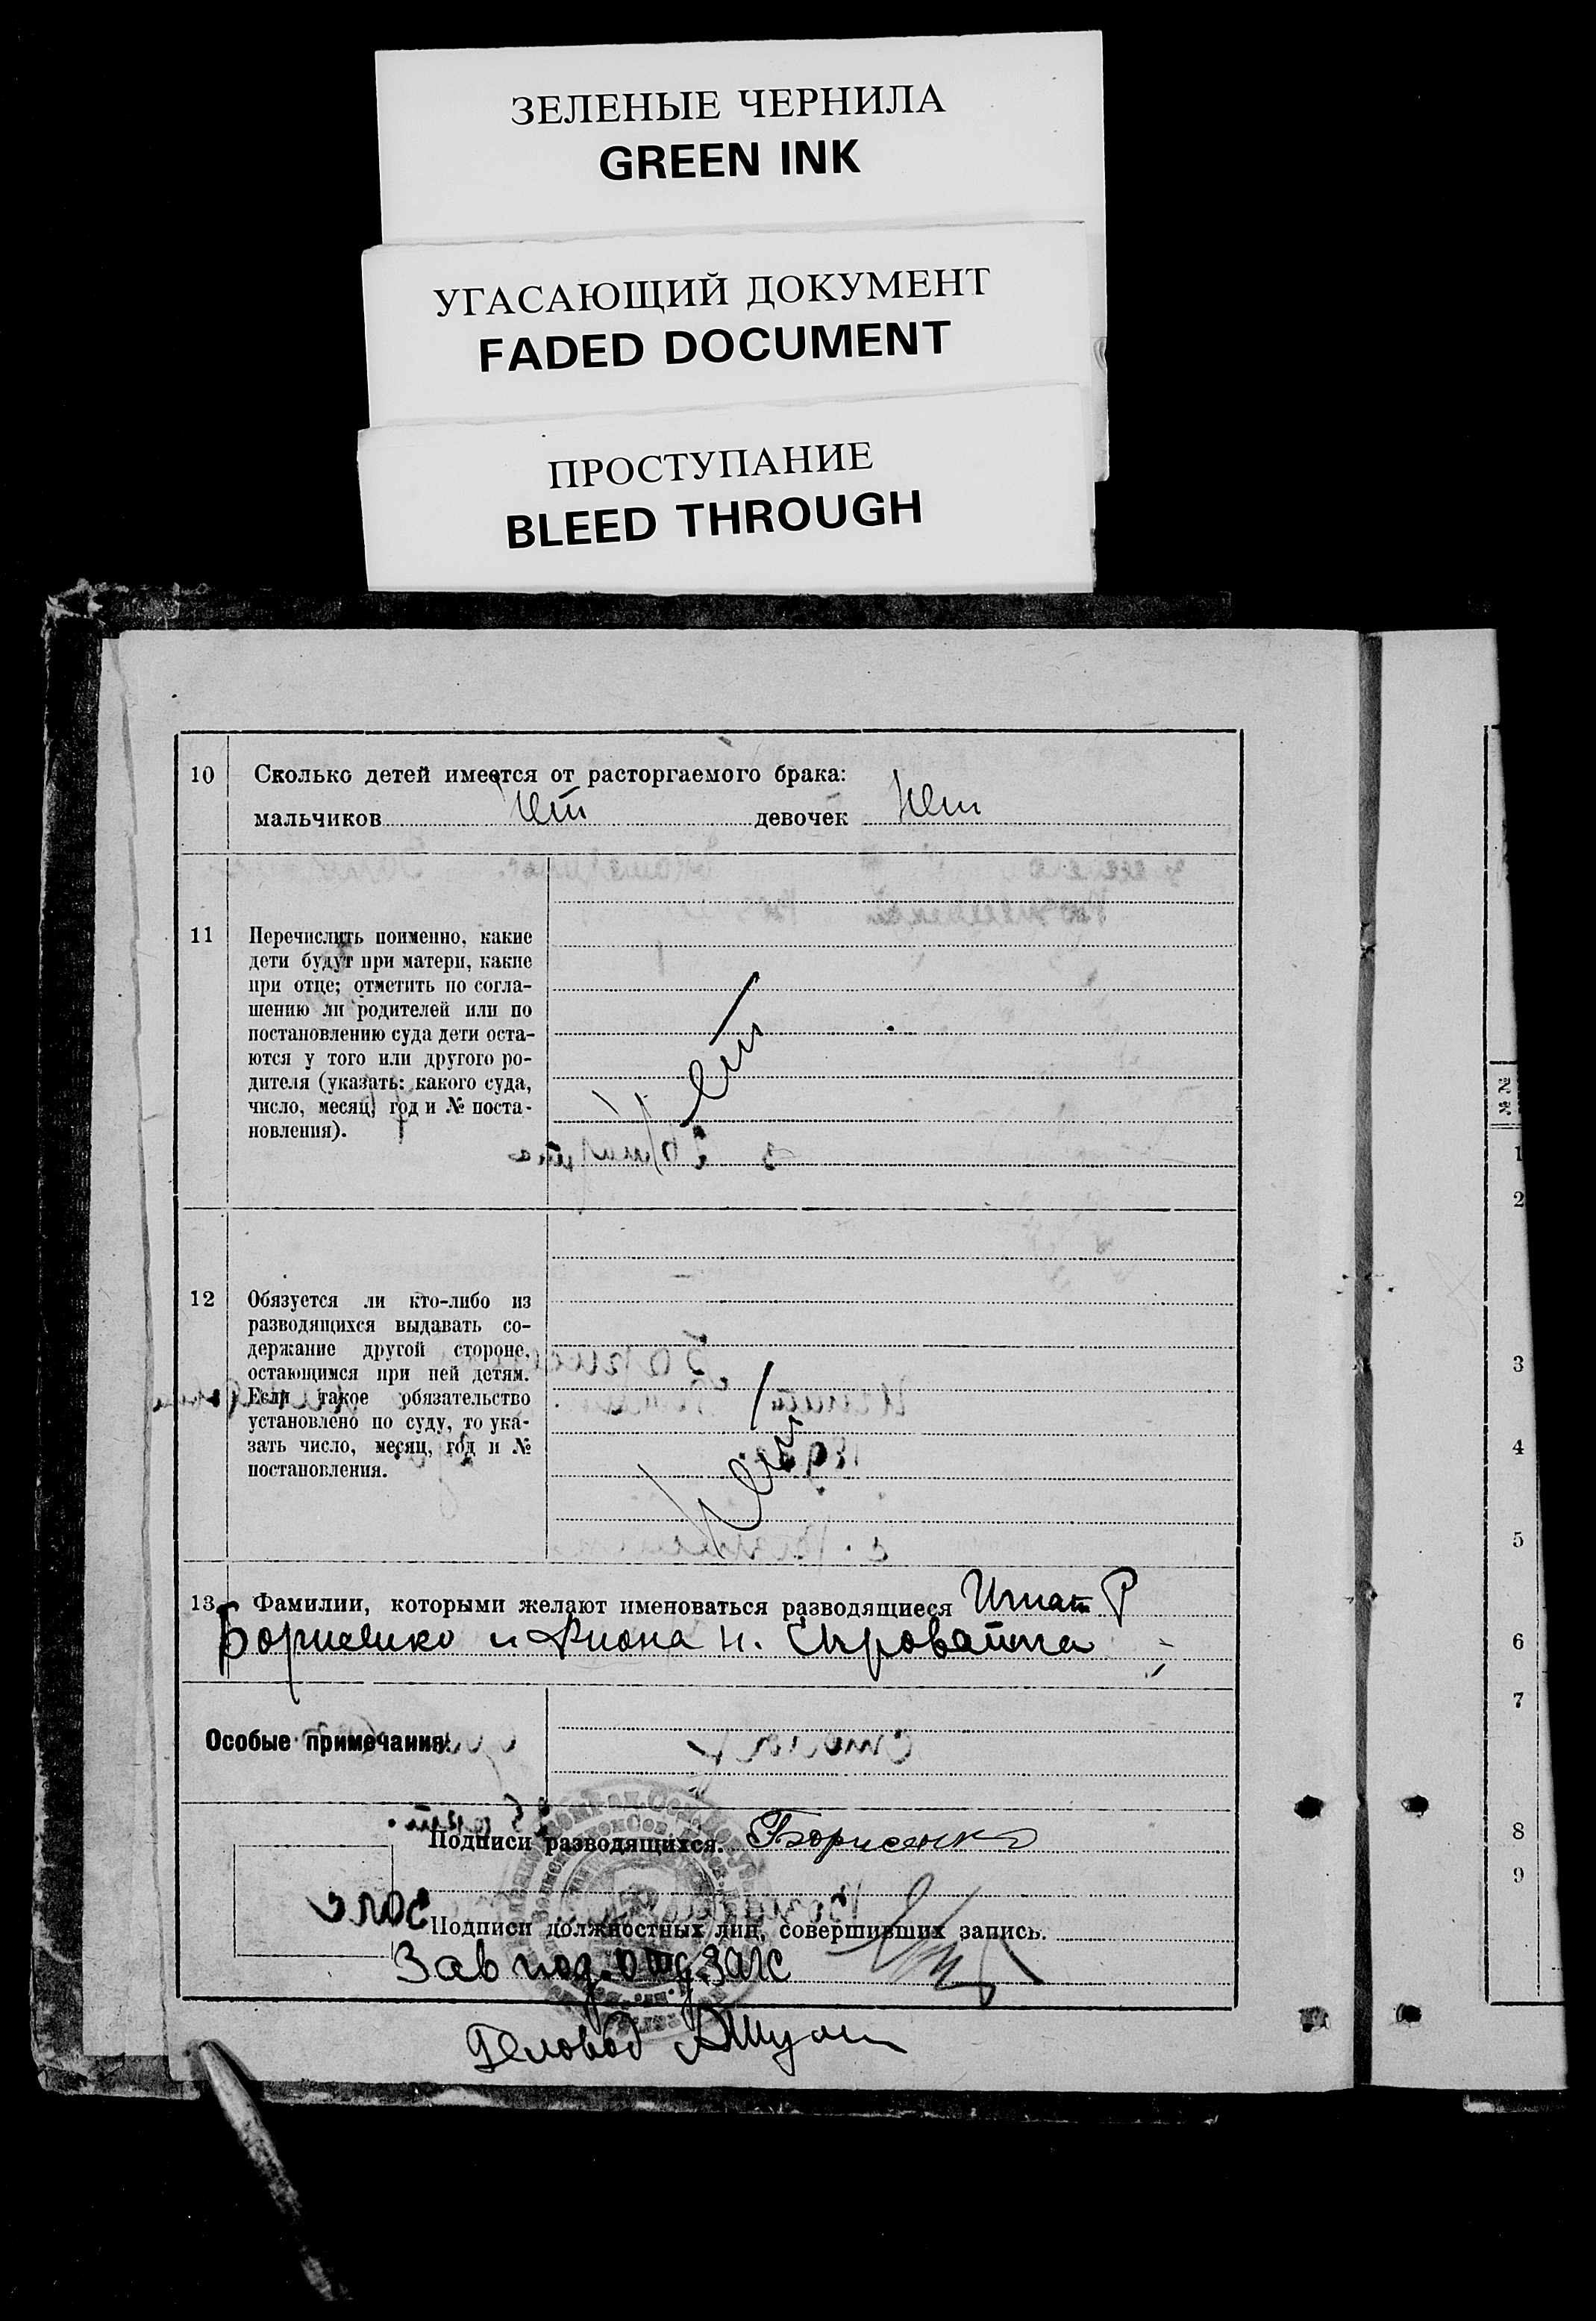 ЗЕЛЕНЫЕ ЧЕРНИЛА
GREEN INK
УГАСАЮЩИЙ ДОКУМЕНТ
FADED DOCUMENT
ПРОСТУПАНИЕ
BLEED THROUGH
10 Сколько детей имеется от расторгаемого брака:
мальчиков нет девочек Нет
11 Перечислить поименно, какие
дети будут при матери, какие
при отце; отметить по согла-
шению ли родителей или по
постановлению суда дети оста-
ются у того или другого ро-
дителя (указать: какого суда,
число, месяц, год и № поста-
новления).
Нет
12 Обязуется ли кто-либо из
разводящихся выдавать со-
держание другой стороне,
остающимся при ней детям.
Если такое обязательство
установлено по суду, то ука-
зать число, месяц, год и №
постановления.
Нет
13 Фамилии, которыми желают именоваться разводящиеся Игнат Р
Борисенко и н. Сыроватка
Особые примечания:
Подписи разводящихся. Борисенко
Подписи должностных лиц, совершивших запись.
Зав под.отд.загс
Деловод
№№
1
2
3
4
5
6
7
8
9